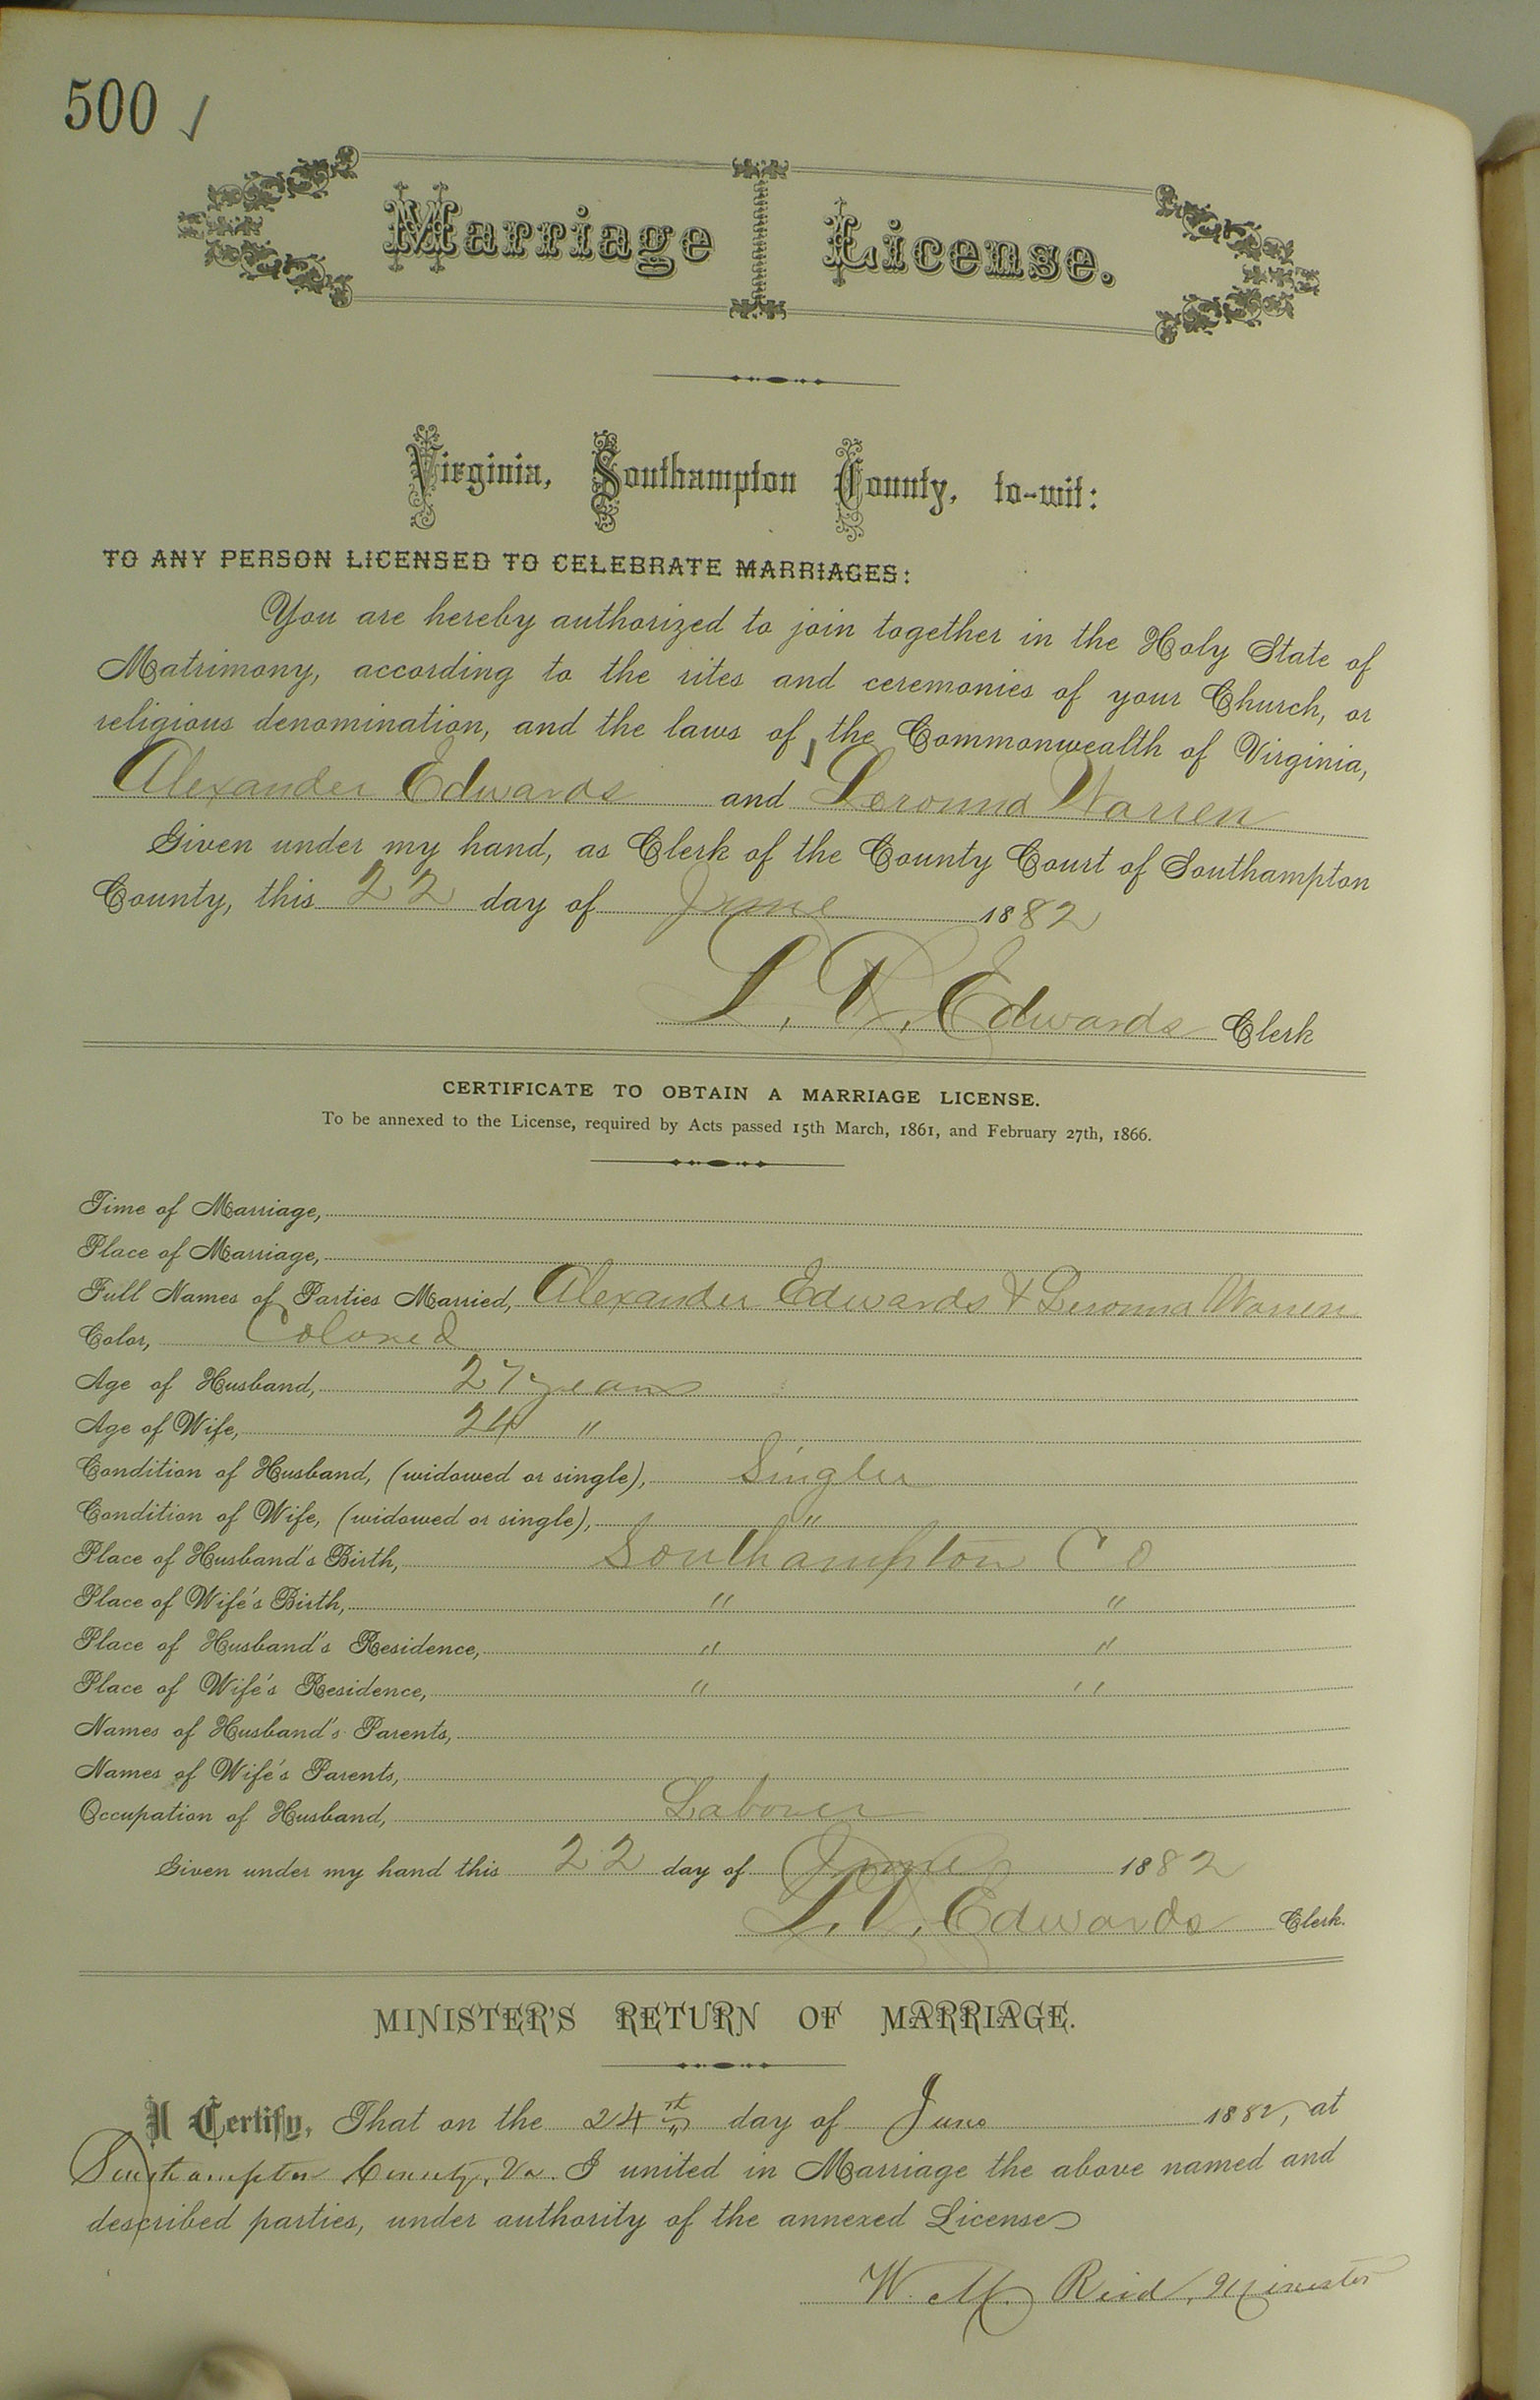 500 ✓
Marriage License.
Virginia, Southampton County, to-wit:
TO ANY PERSON LICENSED TO CELEBRATE MARRIAGES:
You are hereby authorized to join together in the Holy State of
Matrimony, according to the rites and ceremonies of your Church, or
religious denomination, and the laws of the Commonwealth of Virginia,
Alexander Edwards and Warren
Given under my hand, as Clerk of the County Court of Southampton
County, this 22 day of June 1882
L. R. Edwards Clerk
CERTIFICATE TO OBTAIN A MARRIAGE LICENSE.
To be annexed to the License, required by Acts passed 15th March, 1861, and February 27th, 1866.
Time of Marriage,
Place of Marriage,
Full Names of Parties Married, Alexander Edwards & Warren
Color, Colored
Age of Husband, 27 years
Age of Wife, 24 "
Condition of Husband, (widowed or single), Single
Condition of Wife, (widowed or single), "
Place of Husband's Birth, Southampton Co
Place of Wife's Birth, " "
Place of Husband's Residence, " "
Place of Wife's Residence, " "
Names of Husband's Parents,
Names of Wife's Parents,
Occupation of Husband, Laborer
Given under my hand this 22 day of June 1882
L. R. Edwards Clerk.
MINISTER'S RETURN OF MARRIAGE.
I Certify, That on the 24 day of June 1882, at
Southampton County, Va. I united in Marriage the above named and
described parties, under authority of the annexed License
W. M. Reid, Minister